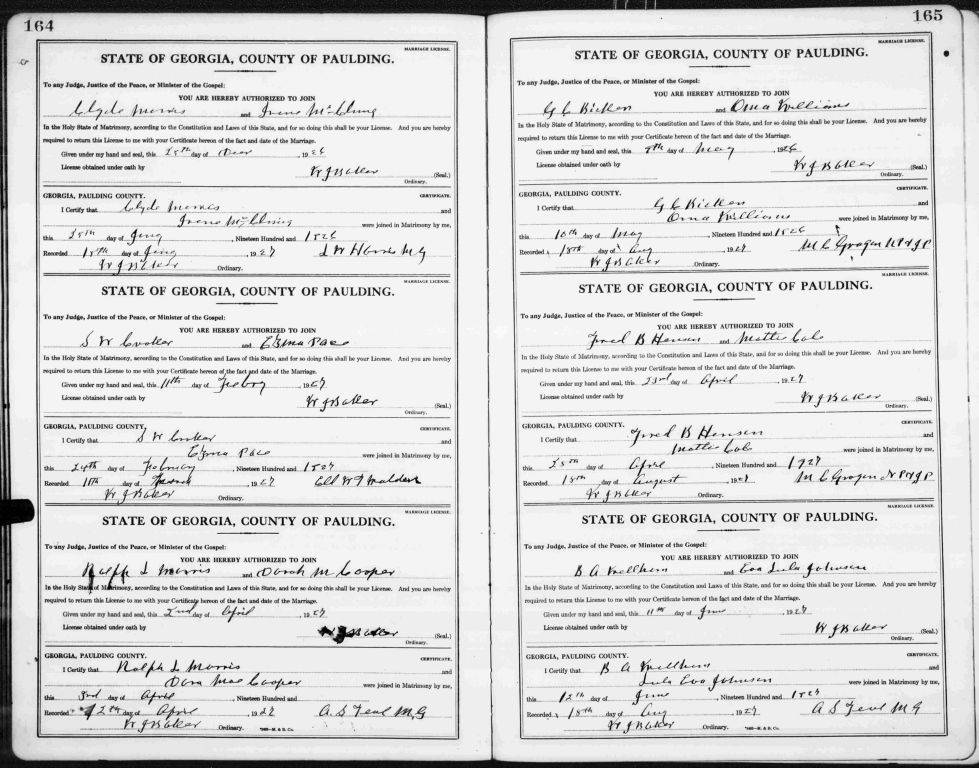 164
MARRIAGE LICENSE.
STATE OF GEORGIA, COUNTY OF PAULDING.
To any Judge, Justice of the Peace, or Minister of the Gospel:
YOU ARE HEREBY AUTHORIZED TO JOIN
Clyde Morris and Irene McClung
In the Holy State of Matrimony, according to the Constitution and Laws of this State, and for so doing this shall be your License. And you are hereby
required to return this License to me with your Certificate hereon of the fact and date of the Marriage.
Given under my hand and seal, this 25th day of Decr, 1926
License obtained under oath by W J Baker (Seal.)
Ordinary.
GEORGIA, PAULDING COUNTY. CERTIFICATE.
I Certify that Clyde Morris and
Irene McClung were joined in Matrimony by me,
this 25th day of, Nineteen Hundred and 1926
Recorded 18th day of, 1927 Harris M G
W J Baker Ordinary.
MARRIAGE LICENSE.
STATE OF GEORGIA, COUNTY OF PAULDING.
To any Judge, Justice of the Peace, or Minister of the Gospel:
YOU ARE HEREBY AUTHORIZED TO JOIN
S W Crocker and Ezma Pace
In the Holy State of Matrimony, according to the Constitution and Laws of this State, and for so doing this shall be your License. And you are hereby
required to return this License to me with your Certificate hereon of the fact and date of the Marriage.
Given under my hand and seal, this 11th day of Febry, 1927
License obtained under oath by W J Baker (Seal.)
Ordinary.
GEORGIA, PAULDING COUNTY. CERTIFICATE.
I Certify that S W Crocker and
Ezma Pace were joined in Matrimony by me,
this 24th day of February, Nineteen Hundred and 1927
Recorded 18th day of March, 1927 Eld W T
W J Baker Ordinary.
MARRIAGE LICENSE.
STATE OF GEORGIA, COUNTY OF PAULDING.
To any Judge, Justice of the Peace, or Minister of the Gospel:
YOU ARE HEREBY AUTHORIZED TO JOIN
Ralph L Morris and Dorah M Cooper
In the Holy State of Matrimony, according to the Constitution and Laws of this State, and for so doing this shall be your License. And you are hereby
required to return this License to me with your Certificate hereon of the fact and date of the Marriage.
Given under my hand and seal, this 2nd day of April, 1927
License obtained under oath by W J Baker (Seal.)
Ordinary.
GEORGIA, PAULDING COUNTY. CERTIFICATE.
I Certify that Ralph L Morris and
Dora Mae Cooper were joined in Matrimony by me,
this 3rd day of April, Nineteen Hundred and
Recorded 12th day of April, 1927 A. S Teal M, G
W J Baker Ordinary.
165
MARRIAGE LICENSE.
STATE OF GEORGIA, COUNTY OF PAULDING.
To any Judge, Justice of the Peace, or Minister of the Gospel:
YOU ARE HEREBY AUTHORIZED TO JOIN
G C and Oma Williams
In the Holy State of Matrimony, according to the Constitution and Laws of this State, and for so doing this shall be your License. And you are hereby
required to return this License to me with your Certificate hereon of the fact and date of the Marriage.
Given under my hand and seal, this 8th day of May, 1926
License obtained under oath by W J Baker (Seal.)
Ordinary.
GEORGIA, PAULDING COUNTY. CERTIFICATE.
I Certify that G C and
Oma Williams were joined in Matrimony by me,
this 10th day of May, Nineteen Hundred and 1926
Recorded 18th day of Aug, 1927 M C Grogan N P & J P
W J Baker Ordinary.
MARRIAGE LICENSE.
STATE OF GEORGIA, COUNTY OF PAULDING.
To any Judge, Justice of the Peace, or Minister of the Gospel:
YOU ARE HEREBY AUTHORIZED TO JOIN
Fred B Hensen and Mattie Cole
In the Holy State of Matrimony, according to the Constitution and Laws of this State, and for so doing this shall be your License. And you are hereby
required to return this License to me with your Certificate hereon of the fact and date of the Marriage.
Given under my hand and seal, this 23rd day of April, 1927
License obtained under oath by W J Baker (Seal.)
Ordinary.
GEORGIA, PAULDING COUNTY. CERTIFICATE.
I Certify that Fred B Hensen and
Mattie Cole were joined in Matrimony by me,
this 25th day of April, Nineteen Hundred and 1927
Recorded 18th day of August, 1927 M C Grogan N P & J P
W J Baker Ordinary.
MARRIAGE LICENSE.
STATE OF GEORGIA, COUNTY OF PAULDING.
To any Judge, Justice of the Peace, or Minister of the Gospel:
YOU ARE HEREBY AUTHORIZED TO JOIN
B A and Eva Lula Johnson
In the Holy State of Matrimony, according to the Constitution and Laws of this State, and for so doing this shall be your License. And you are hereby
required to return this License to me with your Certificate hereon of the fact and date of the Marriage.
Given under my hand and seal, this 11th day of June, 1927
License obtained under oath by W J Baker (Seal.)
Ordinary.
GEORGIA, PAULDING COUNTY. CERTIFICATE.
I Certify that B A and
Lula Eva Johnson were joined in Matrimony by me,
this 12th day of June, Nineteen Hundred and 1927
Recorded 18th day of Aug, 1927 A S Teal M G
W J Baker Ordinary.